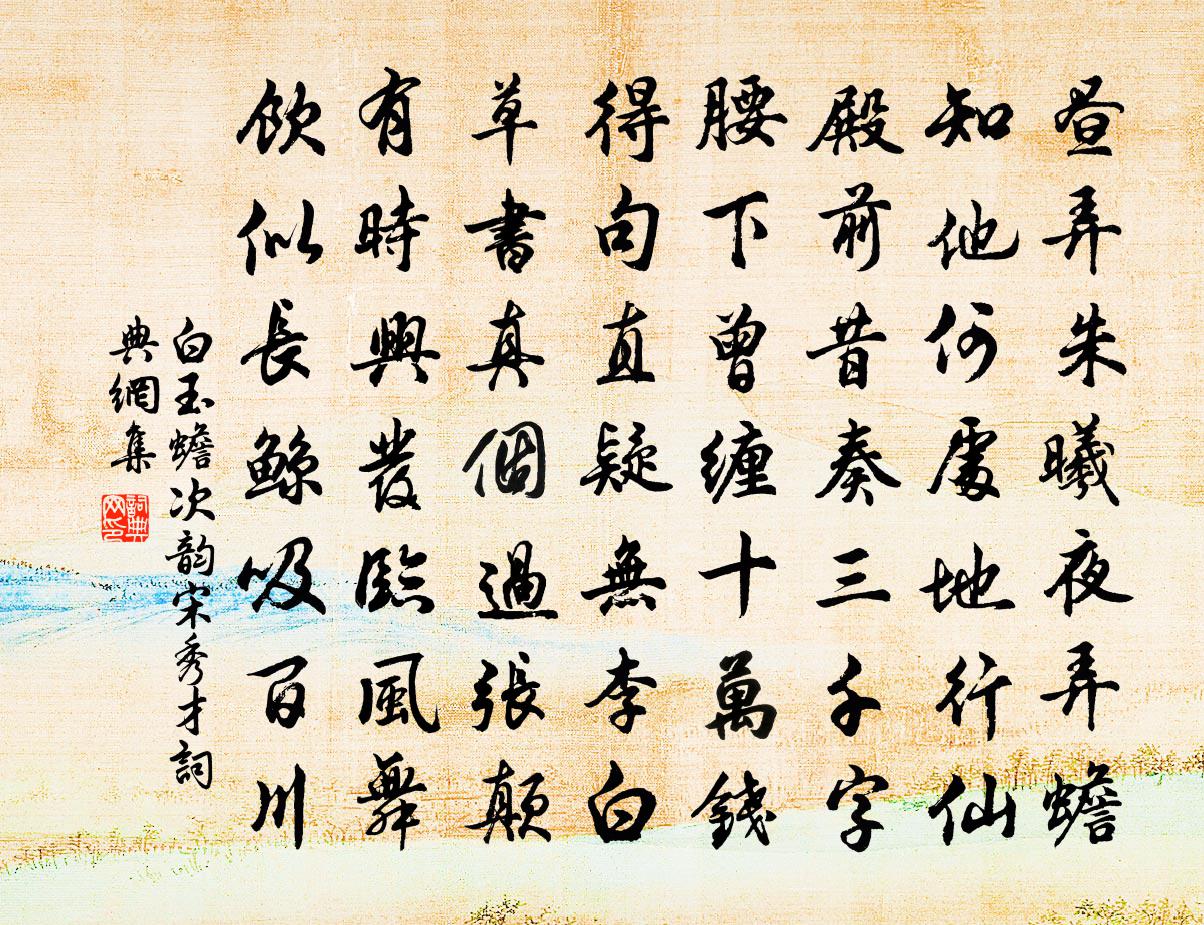 昼弄朱曦夜弄蟾
知他何處地行仙
殿前昔奏三千字
腰下曾纏十萬錢
得句直疑無李白
草書真個過張顛
有時興發臨風舞
飲似長鯨吸百川
白玉蟾次韵宋秀才詞
典網集
詞典
网印